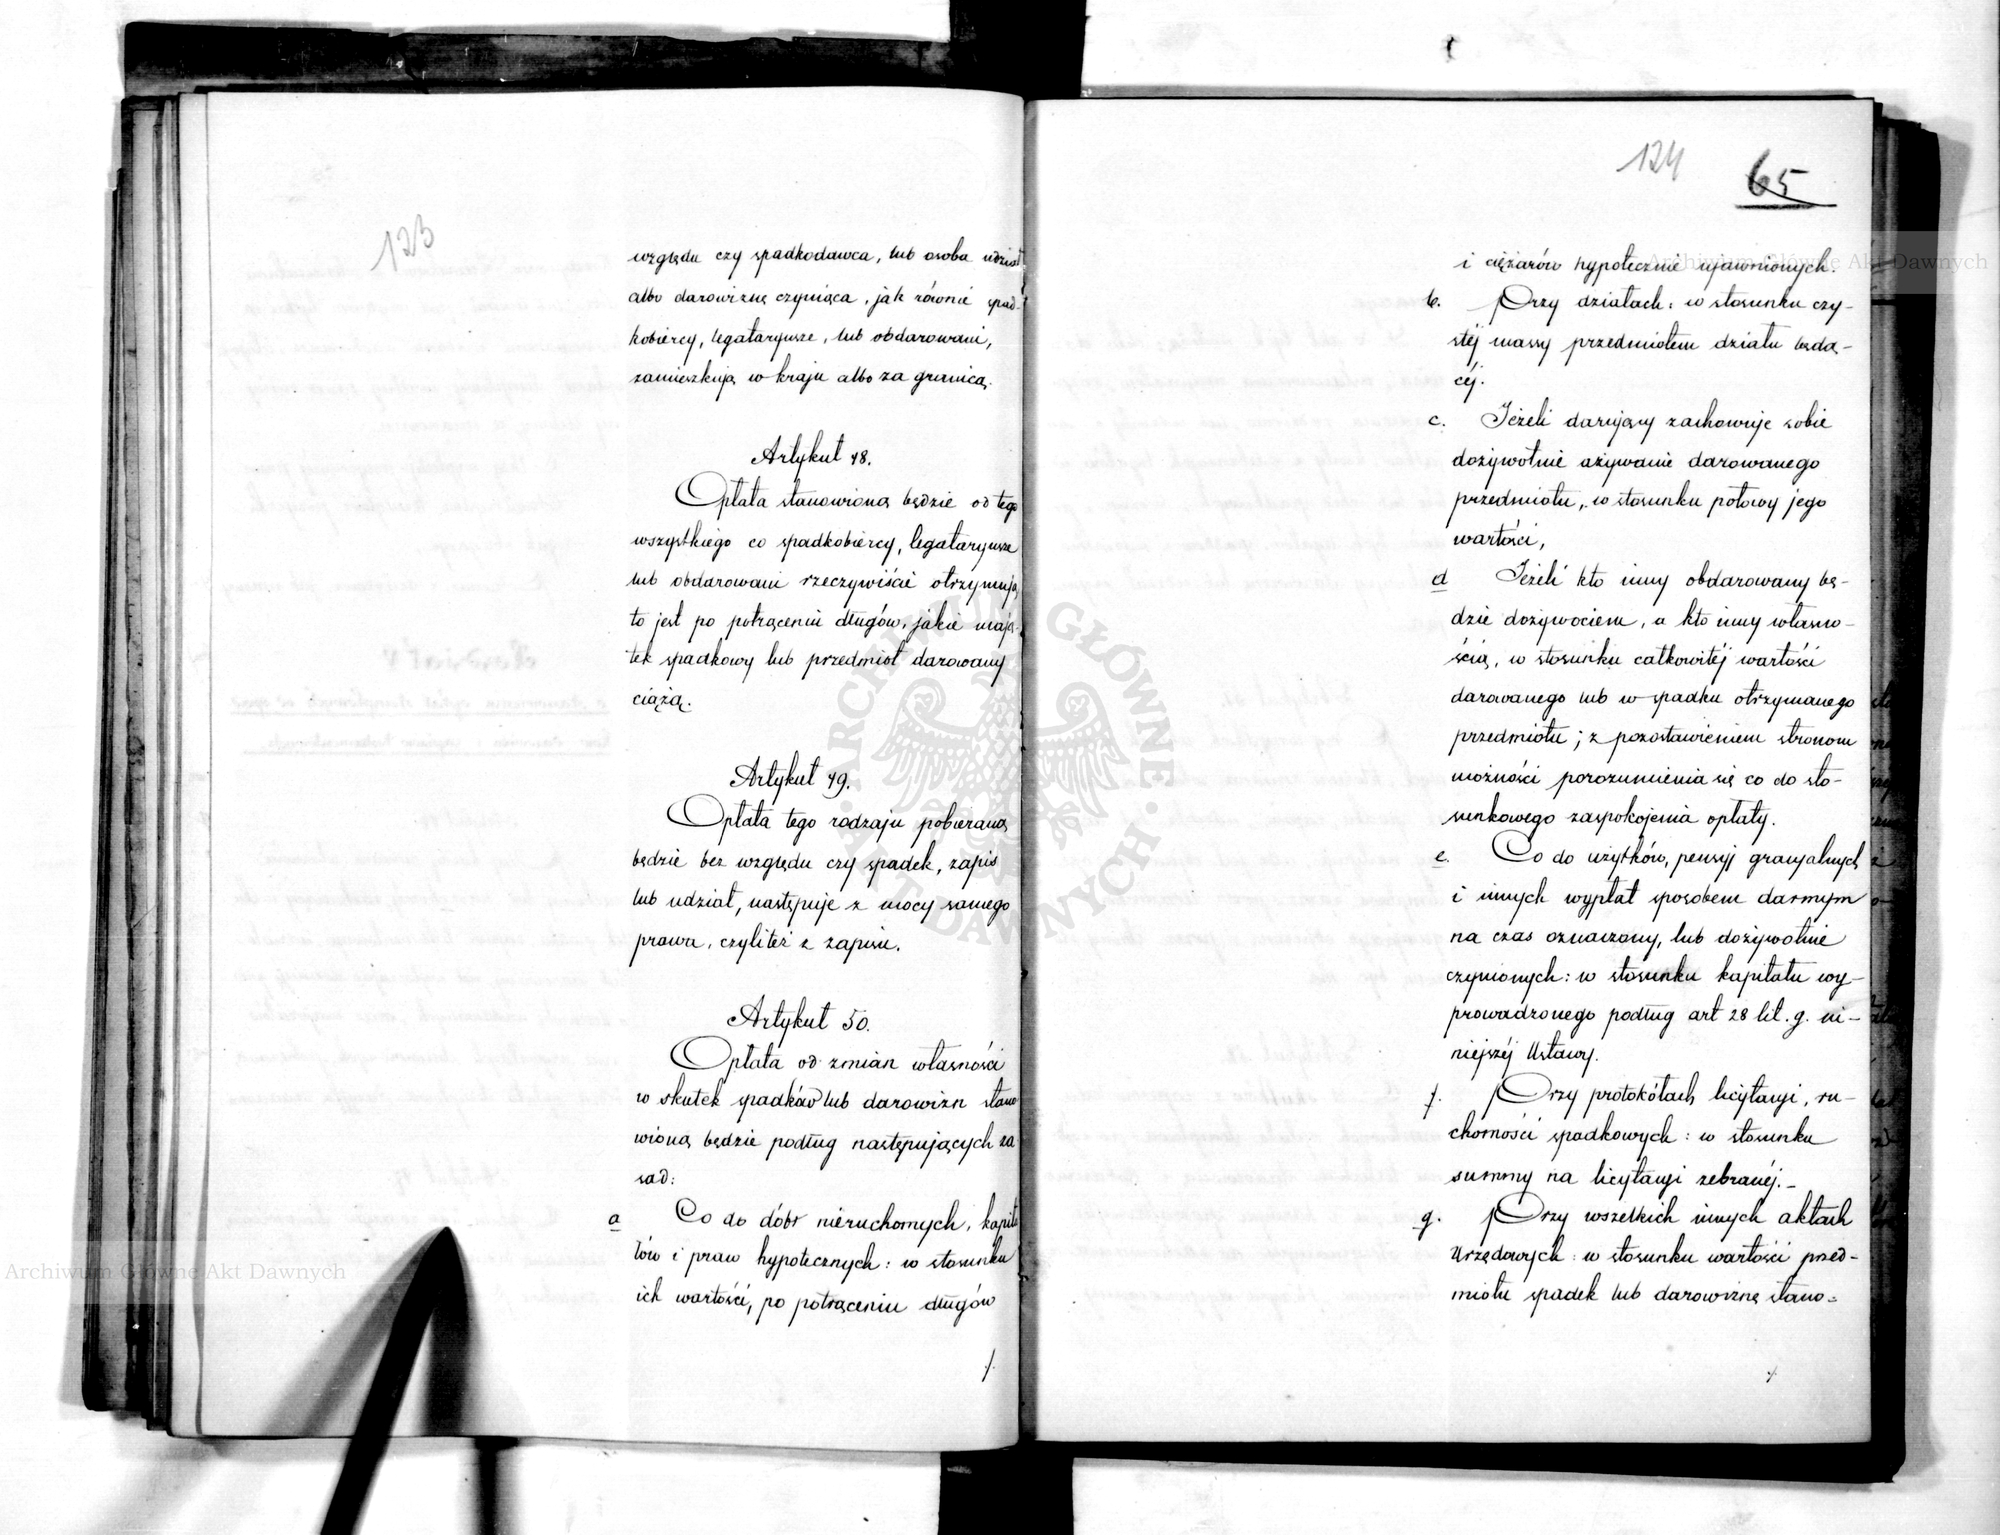 123
względu czy spadkodawca, lub osoba udział
albo darowiznę czyniąca, jak równie spad-
kobiercy, legataryusze, lub obdarowani,
zamieszkują w kraju albo za granicą.
Artykuł 48.
Opłata stanowioną będzie od tego
wszystkiego co spadkobiercy, legataryusze
lub obdarowani rzeczywiście otrzymują
to jest po potrąceniu długów, jakie mają-
tek spadkowy lub przedmiot darowany
ciążą.
Artykuł 49.
Opłata tego rodzaju pobieraną
będzie bez względu czy spadek, zapis
lub udział, następuje z mocy samego
prawa, czyliteż z zapisu.
Artykuł 50.
Opłata od zmian własności
w skutek spadków lub darowizn stano
wioną będzie podług następujących za
sad:
a Co do dóbr nieruchomych, kapita
łów i praw hypotecznych: w stosunku
ich wartości, po potrąceniu długów
124
65
i ciężarów hypotecznie ujawnionych.
b. Przy działach: w stosunku czy-
stéj massy przedmiotem działu będą-
céj.
c. Jeżeli darujący zachowuje sobie
dożywotnie używanie darowanego
przedmiotu, w stosunku połowy jego
wartości,
d Jeżeli kto inny obdarowany bę-
dzie dożywociem, a kto inny własno-
ścią, w stosunku całkowitéj wartości
darowanego lub w spadku otrzymanego
przedmiotu; z pozostawieniem stronom
możności porozumienia się co do sto-
sunkowego zaspokojenia opłaty.
e. Co do użytków, pensyj gracyalnych
i innych wypłat sposobem darmym
na czas oznaczony, lub dożywotnie
czynionych: w stosunku kapitału wy-
prowadzonego podług art 28 lit. g. ni-
niejszéj Ustawy.
f. Przy protokółach licytacyi, ru-
chomości spadkowych: w stosunku
summy na licytacyi zebranéj.-
g. Przy wszelkich innych aktach
Urzędowych: w stosunku wartości przed-
miotu spadek lub darowiznę stano=
Archiwum Główne Akt Dawnych
Archiwum Główne Akt Dawnych
ARCHIWUM GŁÓWNE AKT DAWNYCH